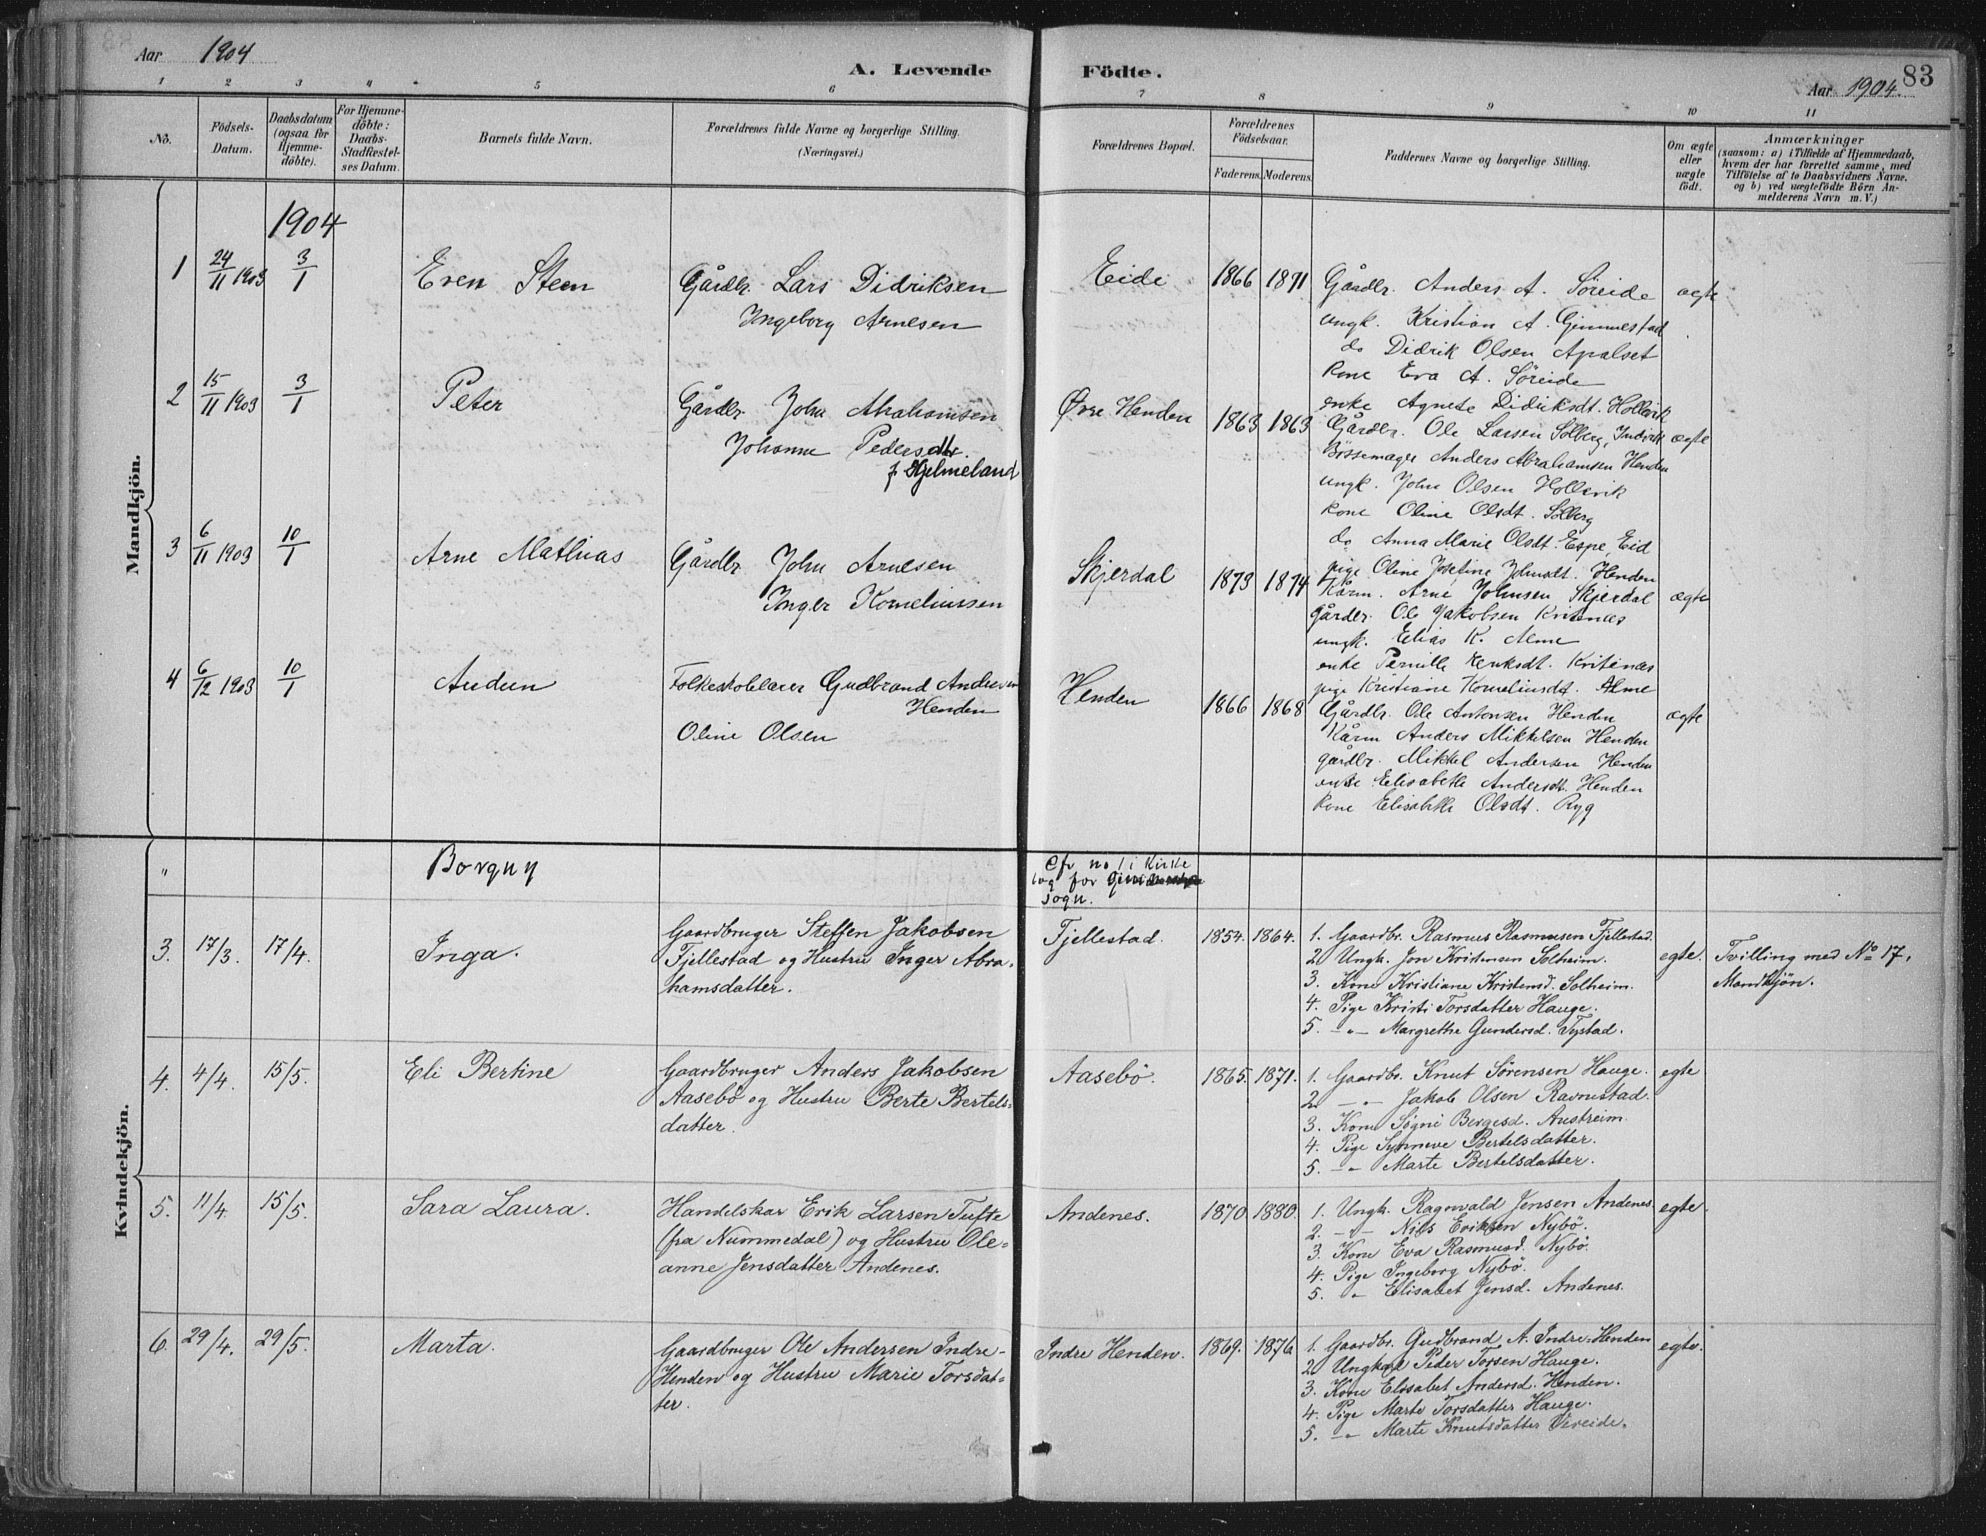 Aar 1904
A. Levende Födte.
83
Aar 1904.
1 2 3 4 5 6 7 8 9 10 11
No.
Födsels-Datum.
Daabsdatum (ogsaa for Hjemmedöbte).
For Hjemmedöbte: Daabs-Stadfæstelses Datum.
Barnets fulde Navn.
Forældrenes fulde Navne og borgerlige Stilling. (Næringsvei.)
Forældrenes Bopæl.
Forældrenes Födselsaar.
Faderens. Moderens.
Faddernes Navne og borgerlige Stilling.
Om ægte eller uægte födt.
Anmærkninger
(saasom: a) i Tilfælde af Hjemmedaab, hvem der har forrettet samme, med Tilföielse af to Daabsvidners Navne, og b) ved uægtefödte Börn Anmelderens Navn m. V.)
Mandkjön.
1904
1 24/11 1903 3/1 Even Steen
Gårdbr. Lars Didriksen
Ingeborg Arnesen
Eide 1866 1871
Gårdbr. Anders A. Søreide
ungk. Kristian A. Gimmestad
do Didrik Olsen Apalset
kone Eva A. Søreide
enke Agnete Didriksdt. Hollevik
ægte
2 15/11 1903 3/1 Peter
Gårdbr. John Abrahamsen
Johanne Pedersdtr.
f. Hjelmeland
Øvre Henden 1863 1863
Gårdbr. Ole Larsen Solberg, Indvik
Bøssemager Anders Abrahamsen Henden
ungk. John Olsen Hollevik
kone Oline Olsdt. Solberg
do Anna Marie Olsdt. Espe, Eid
pige Oline Josefine Johnsdt. Henden
ægte
3 6/11 1903 10/1 Arne Mathias
Gårdbr. John Arnesen
Inger Korneliussen
Skjerdal 1873 1874
Kårm. Arne Johnsen Skjerdal
gårdbr. Ole Jakobsen Kritenæs
ungk. Elias K. Alme
enke Pernille Henksdt. Kritenæs
pige Kristiane Korneliusdt. Alme
ægte
4 6/12 1903 10/1 Audun
Folkeskolelærer Gudbrand Andersen
Henden
Oline Olsen
Henden 1866 1868
Gårdbr. Ole Antonsen Henden
Kårm Anders Mikkelsen Henden
gårdbr. Mikkel Andersen Henden
enke Elisabeth Andersdt. Henden
kone Elisabeth Olsdt. Ryg
ægte
Kvindekjön.
" Borguy
Cfr no 1 i Kirke
bog for
sogn.
3. 17/3. 17/4. Inga.
Gaardbruger Steffen Jakobsen
Fjellestad og Hustru Inger Abra-
hamsdatter.
Fjellestad. 1854. 1864.
1. Gaardbr. Rasmus Rasmusen Fjellestad.
2. Ungk. Jon Kristensen Solheim.
3. Kone Kristiane Kristensd. Solheim.
4. Pige Kristi Torsdatter Hauge.
5. -"- Margrethe Gundersd. Tystad.
egte.
Tvilling med No 17,
Mandkjön.
4. 4/4. 15/5. Eli Bertine
Gaardbruger Anders Jakobsen
Aasebö og Hustru Berte Bertels-
datter.
Aasebö. 1865. 1871.
1. Gaardbr. Knut Sørensen Hauge.
2. -"- Jakob Olsen Ravnestad.
3. Kone Søgni Bergesd. Austreim.
4. Pige Synneve Bertelsdatter.
5. -"- Marte Bertelsdatter.
egte
5. 11/4 15/5. Sara Laura.
Handelskar Erik Larsen Tufte
(fra Nummedal) og Hustru Ole-
anne Jensdatter Andenes.
Andenes. 1870 1880.
1. Ungk. Ragnvald Jensen Andenes
2. -"- Nils Eriksen Nybö.
3. Kone Eva Rasmusd. Nybö.
4. Pige Ingeborg Nybö.
5. " Elisabet Jensd. Andenes.
egte.
6. 29/4. 29/5. Marta.
Gaardbruger Ole Andersen Indre-
Henden og Hustru Marie Torsdat-
ter.
Indre Henden. 1869. 1876
1. Gaardbr. Gudbrand A. Indre-Henden
2. Ungkar Peder Torsen Hauge.
3. Kone Elisabet Andersd. Henden.
4. Pige Marte Torsdatter Hauge.
5. -"- Marte Knutsdatter Vereide.
egte.